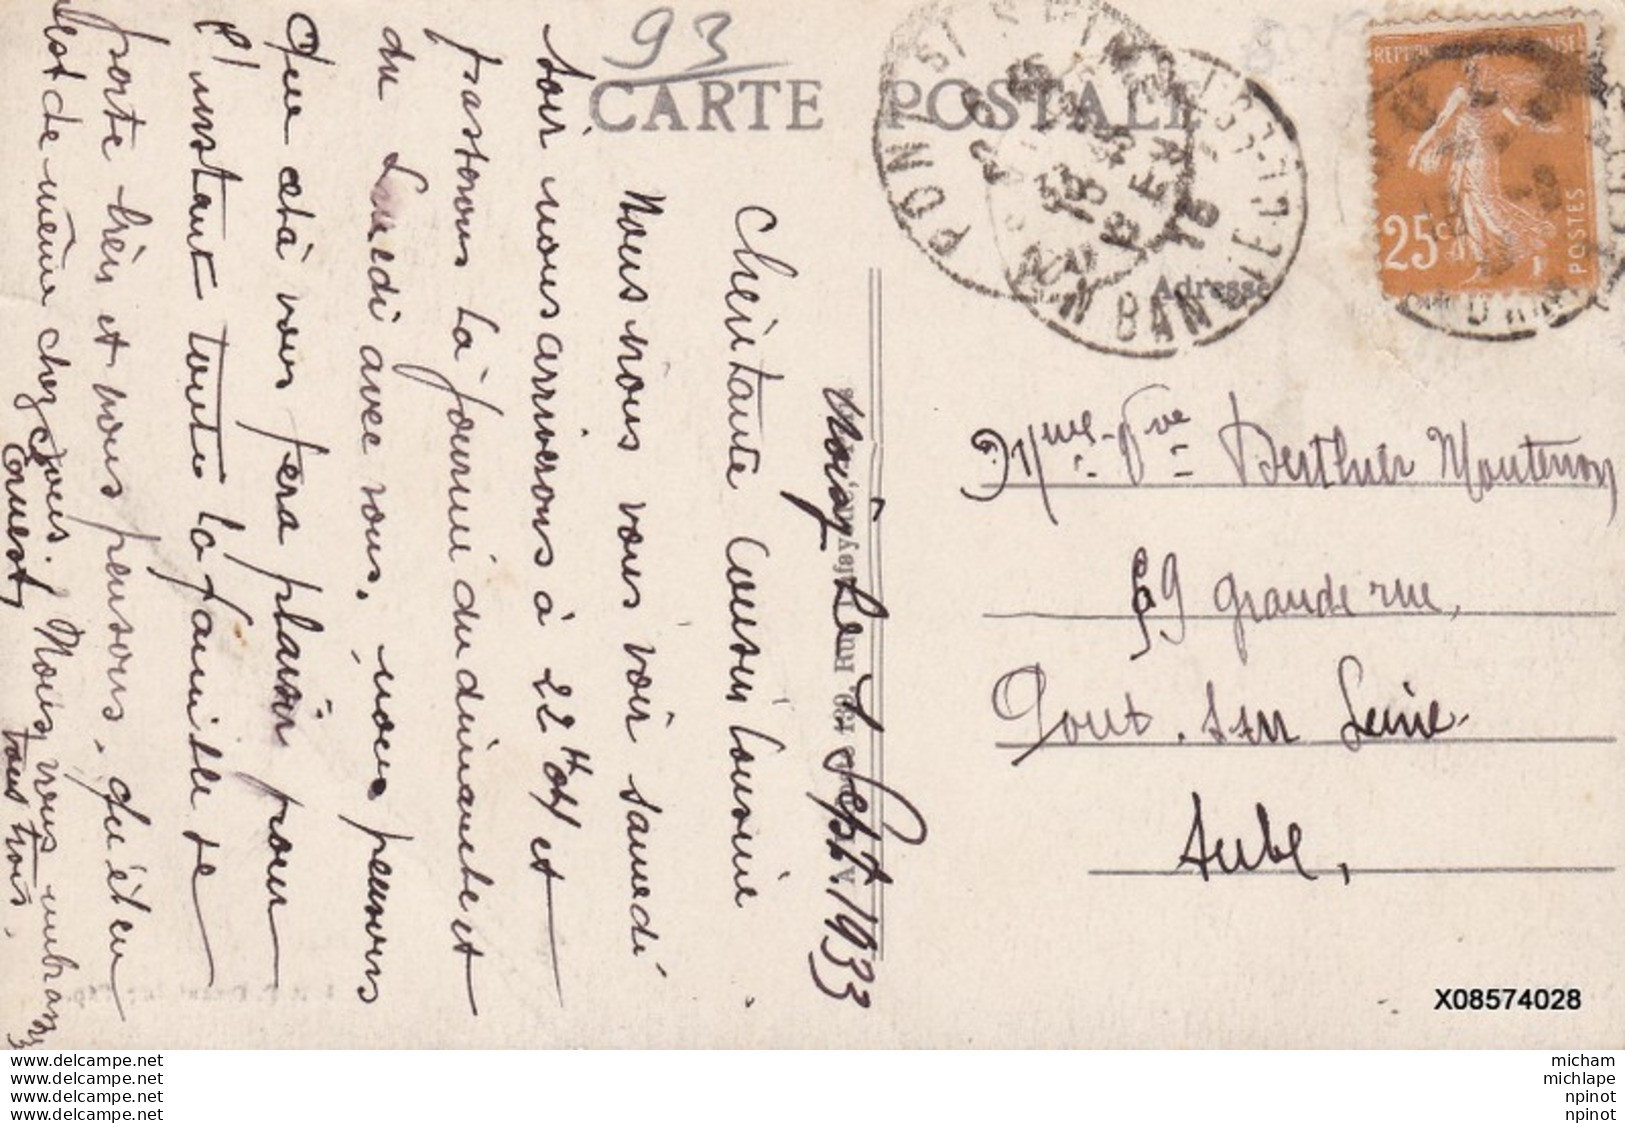 93
CARTE POSTALE
REPUBLIQUE FRANÇAISE
25c
POSTES
Adresse
Le 7 Sept. 1933
Chère tante Cousin Cousine
Nous irons vous voir samedi
soir nous arriverons à 22H04 et
passerons la journée du dimanche et
du Lundi avec vous. nous pensons
que cela vous fera plaisir pour
l'instant toute la famille se
porte bien et nous pensons qu'il en
est de même chez vous. Nous vous embrassons
tous trois.
Ernest,
Mme Vve Berthier Moutenon
59 Grande rue,
Pont sur Seine
Aube,
X08574028
www.delcampe.net
www.delcampe.net
www.delcampe.net
www.delcampe.net
micham
michlape
npinot
npinot